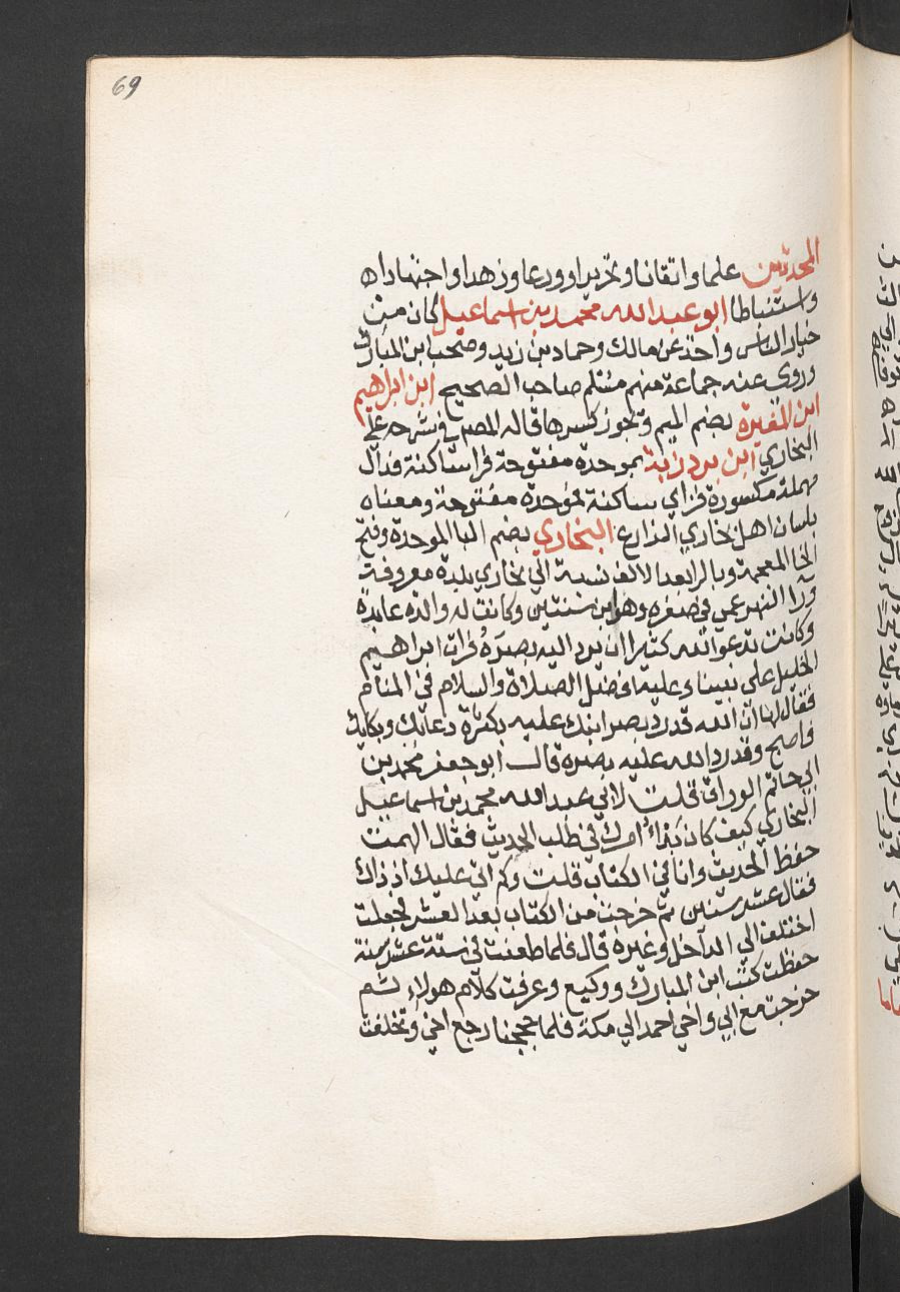 69
المحدثين علما واتقانا وتحريرا وورعا وزهدا واجتهادا
واستنباطا ابو عبد الله محمد بن اسماعيل كان من
خيار الناس واخذ عن مالك وحماد بن زيد وصحب ابن المبارك
وروى عنه جماعة منهم مسلم صاحب الصحيح ابن ابراهيم
ابن المغيرة بضم الميم وتجوز كسرها قاله المصـ في شرحه على
البخاري ابن بردزبة بموحدة مفتوحة فراساكنة فدال
مهملة مكسورة فزاي ساكنة فموحدة مفتوحة ومعناه
بلسان اهل بخاري الزارع البخاري بضم البا الموحدة وفتح
الخا المعجمة وبالرا بعد الالف نسبة الي بخاري بلدة معروفة
ورآ النهر عمي في صغره وهو ابن سنتين وكانت له والده عابدة
وكانت تدعو الله كثيرا ان يرد اليه بصره فرات ابراهيم
الخليل على نبينا وعليه افضل الصلاة والسلام في المنام
فقال لها ان الله قد رد بصر ابنك عليه بكثرة دعائك وبكائك
فاصبح وقد رد الله عليه بصره قال ابو جعفر محمد بن
ابي حاتم الوراق قلت لابي عبد الله محمد بن اسماعيل
البخاري كيف كان بدء امرك في طلب الحديث فقال الهمت
حفظ الحديث وانا في الكتاب قلت وكم اتى عليك اذ ذاك
فقال عشر سنين ثم خرجت من الكتاب بعد العشر فجعلت
اختلف الي الداخل وغيره قال فلما طعنت في ستة عشر سنة
حفظت كتب ابن المبارك ووكيع وعرفت كلام هولاء ثم
خرجت مع ابي واخي احمد الي مكة فلما حججنا رجع اخي وتخلفت